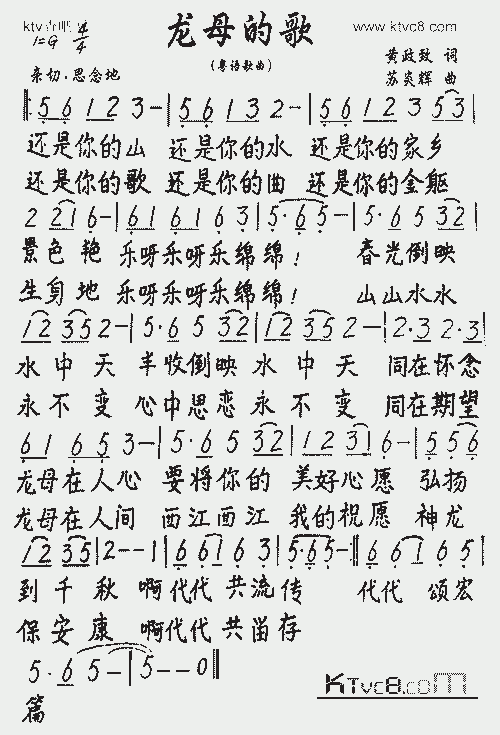 龙母的歌
www.ktvc8.com
1=G 4/4
(粤语歌曲)
黄政致 词
亲切·思念地
苏炎辉 曲
‖:5 6 1 2 3-|5 6 1 3 2-|5 6 1 2 3 5 3|
还是你的山 还是你的水 还是你的家乡
还是你的歌 还是你的曲 还是你的金躯
2 2 1 6-|6 1 6 1 6 3|5·6 5-|5·6 5 3 2|
景色艳 乐呀乐呀乐绵绵! 春光倒映
生身地 乐呀乐呀乐绵绵! 山山水水
1 2 3 5 2-|5·6 5 3 2|1 2 3 5 2-|2·3 2·3|
水中天 丰收倒映水中天 同在怀念
永不变 心中思恋永不变 同在期望
6 1 6 5 3-|5·6 5 3 2|1 2 3 1 6-|5 5 6|
龙母在人心 要将你的 美好心愿 弘扬
龙母在人间 西江西江 我的祝愿 神龙
1 2 3 5|2--1|6 6 1 6 3|5·6 5-:‖6 6 1 6 5|
到千秋 啊代代共流传 代代颂宏
保安康 啊代代共留存
5·6 5-|5--0‖
篇
KTvc8.com